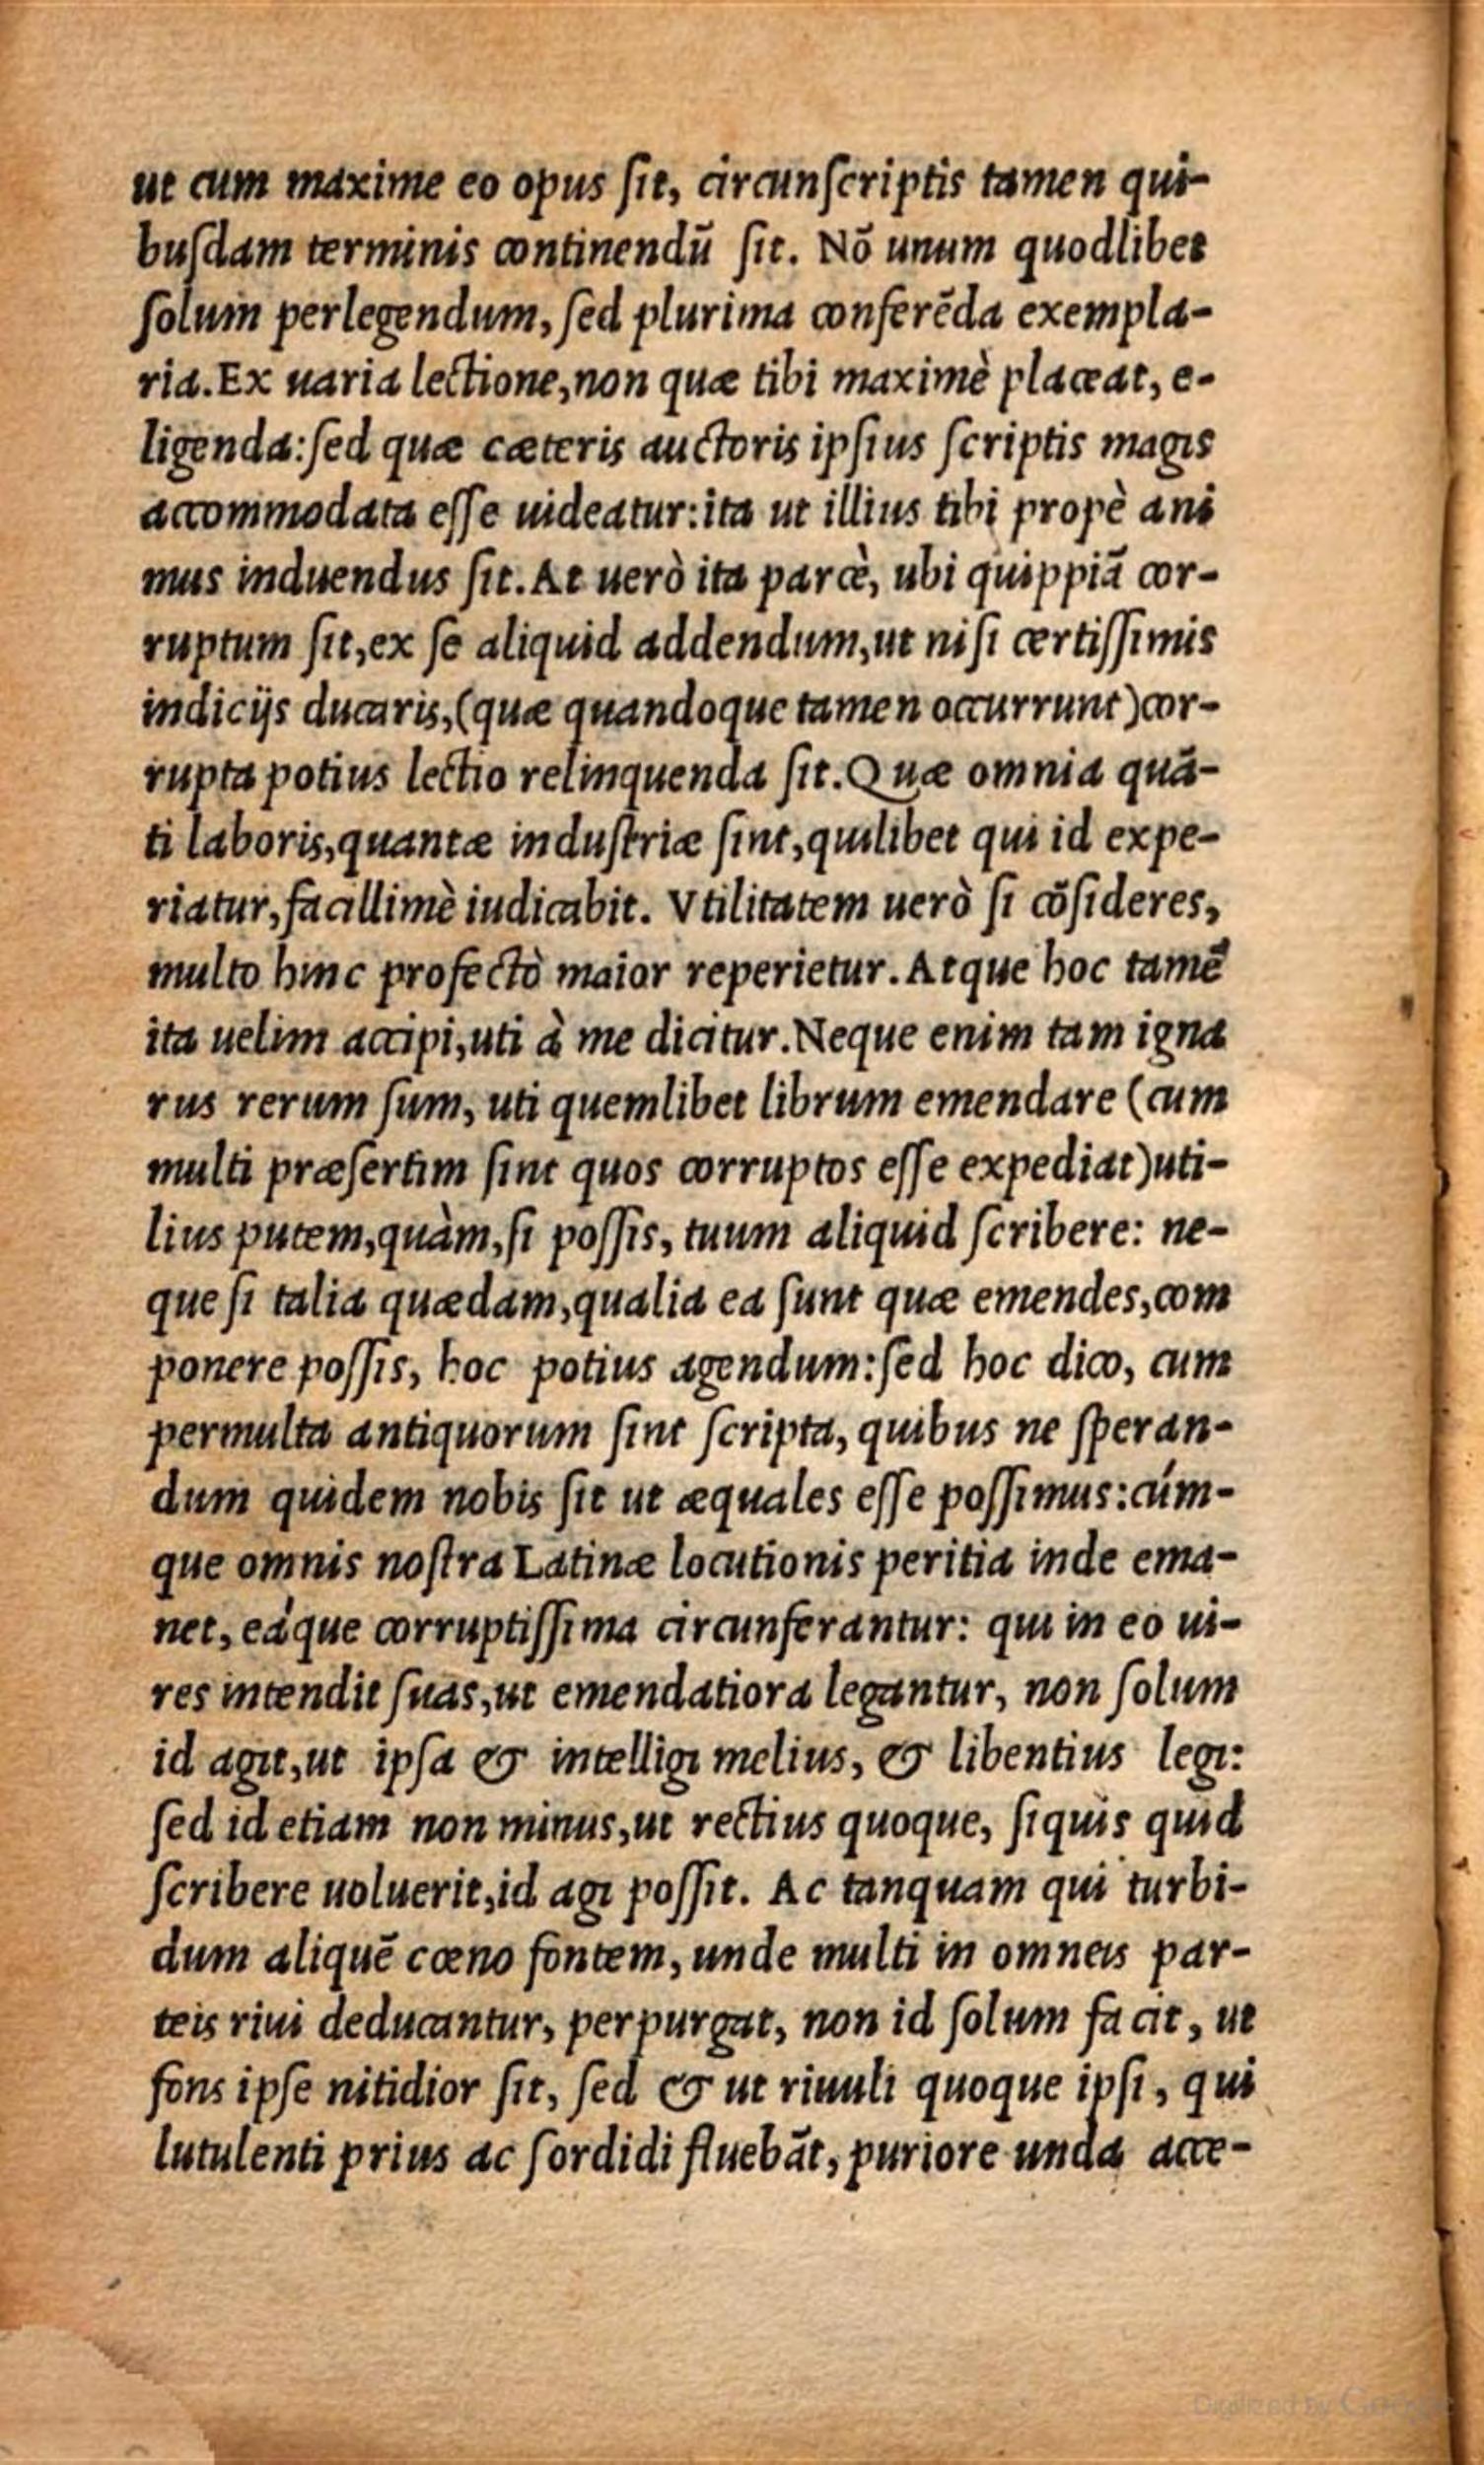 ut cum maxime eo opus ſit, circunſcriptis tamen qui-
buſdam terminis continendū ſit. Nō unum quodlibet
ſolum perlegendum, ſed plurima conferēda exempla-
ria. Ex uaria lectione, non quæ tibi maximè placeat, e-
ligenda: ſed quæ cæteris auctoris ipſius ſcriptis magis
accommodata eſſe uideatur: ita ut illius tibi propè ani
mus induendus ſit. At uerò ita parcè, ubi quippiā cor-
ruptum ſit, ex ſe aliquid addendum, ut niſi certiſſimis
indicijs ducaris, (quæ quandoque tamen occurrunt) cor-
rupta potius lectio relinquenda ſit. Quæ omnia quā-
ti laboris, quantæ induſtriæ ſint, quilibet qui id expe-
riatur, facillimè iudicabit. Vtilitatem uerò ſi cōſideres,
multo hinc profectò maior reperietur. Atque hoc tamē
ita uelim accipi, uti à me dicitur. Neque enim tam igna
rus rerum ſum, uti quemlibet librum emendare (cum
multi præſertim ſint quos corruptos eſſe expediat) uti-
lius putem, quàm, ſi poſſis, tuum aliquid ſcribere: ne-
que ſi talia quædam, qualia ea ſunt quæ emendes, com
ponere poſſis, hoc potius agendum: ſed hoc dico, cum
permulta antiquorum ſint ſcripta, quibus ne ſperan-
dum quidem nobis ſit ut æquales eſſe poſſimus: cúm-
que omnis noſtra Latinæ locutionis peritia inde ema-
net, eáque corruptiſſima circunferantur: qui in eo ui-
res intendit ſuas, ut emendatiora legantur, non ſolum
id agit, ut ipſa & intelligi melius, & libentius legi:
ſed id etiam non minus, ut rectius quoque, ſiquis quid
ſcribere uoluerit, id agi poſſit. Ac tanquam qui turbi-
dum aliquē cœno fontem, unde multi in omneis par-
teis riui deducantur, perpurgat, non id ſolum facit, ut
fons ipſe nitidior ſit, ſed & ut riuuli quoque ipſi, qui
lutulenti prius ac ſordidi fluebāt, puriore unda acce-
Digitized by Google